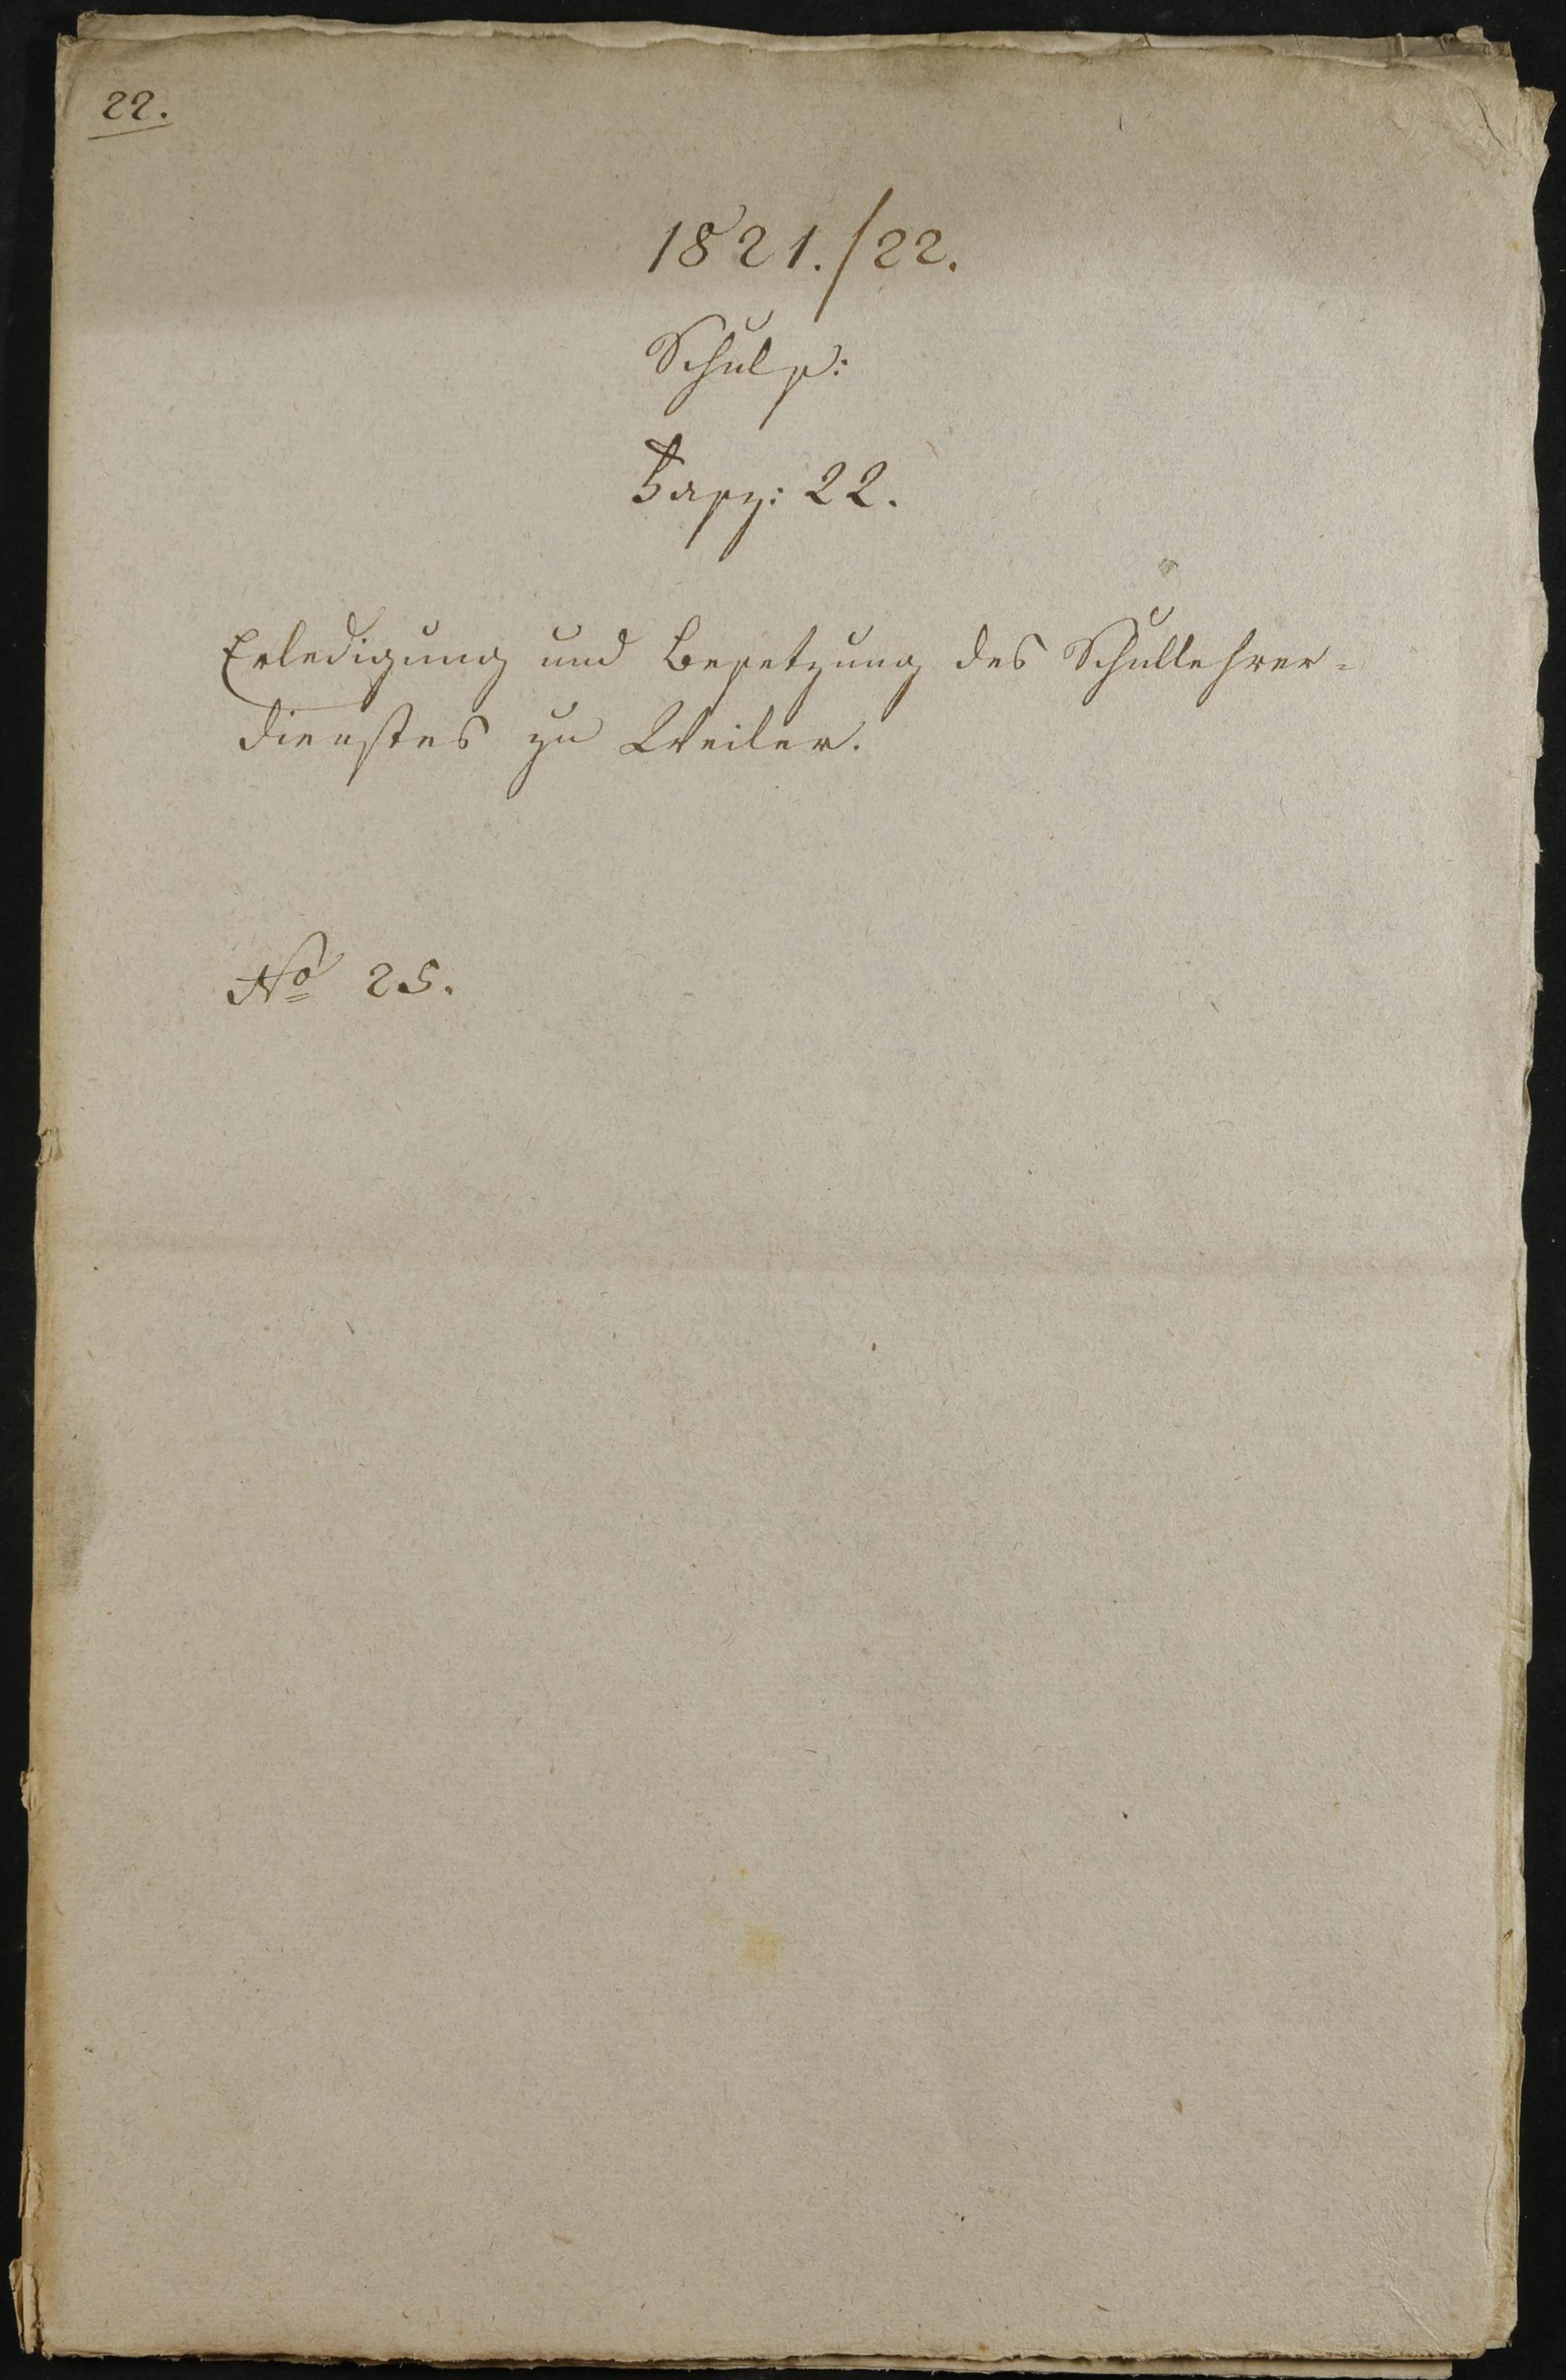 22.
1821./22.
Schuls:
Fasz: 22.
Erledigung und Besetzung des Schullehrer-
dienstes zu Weiler.
No 25.